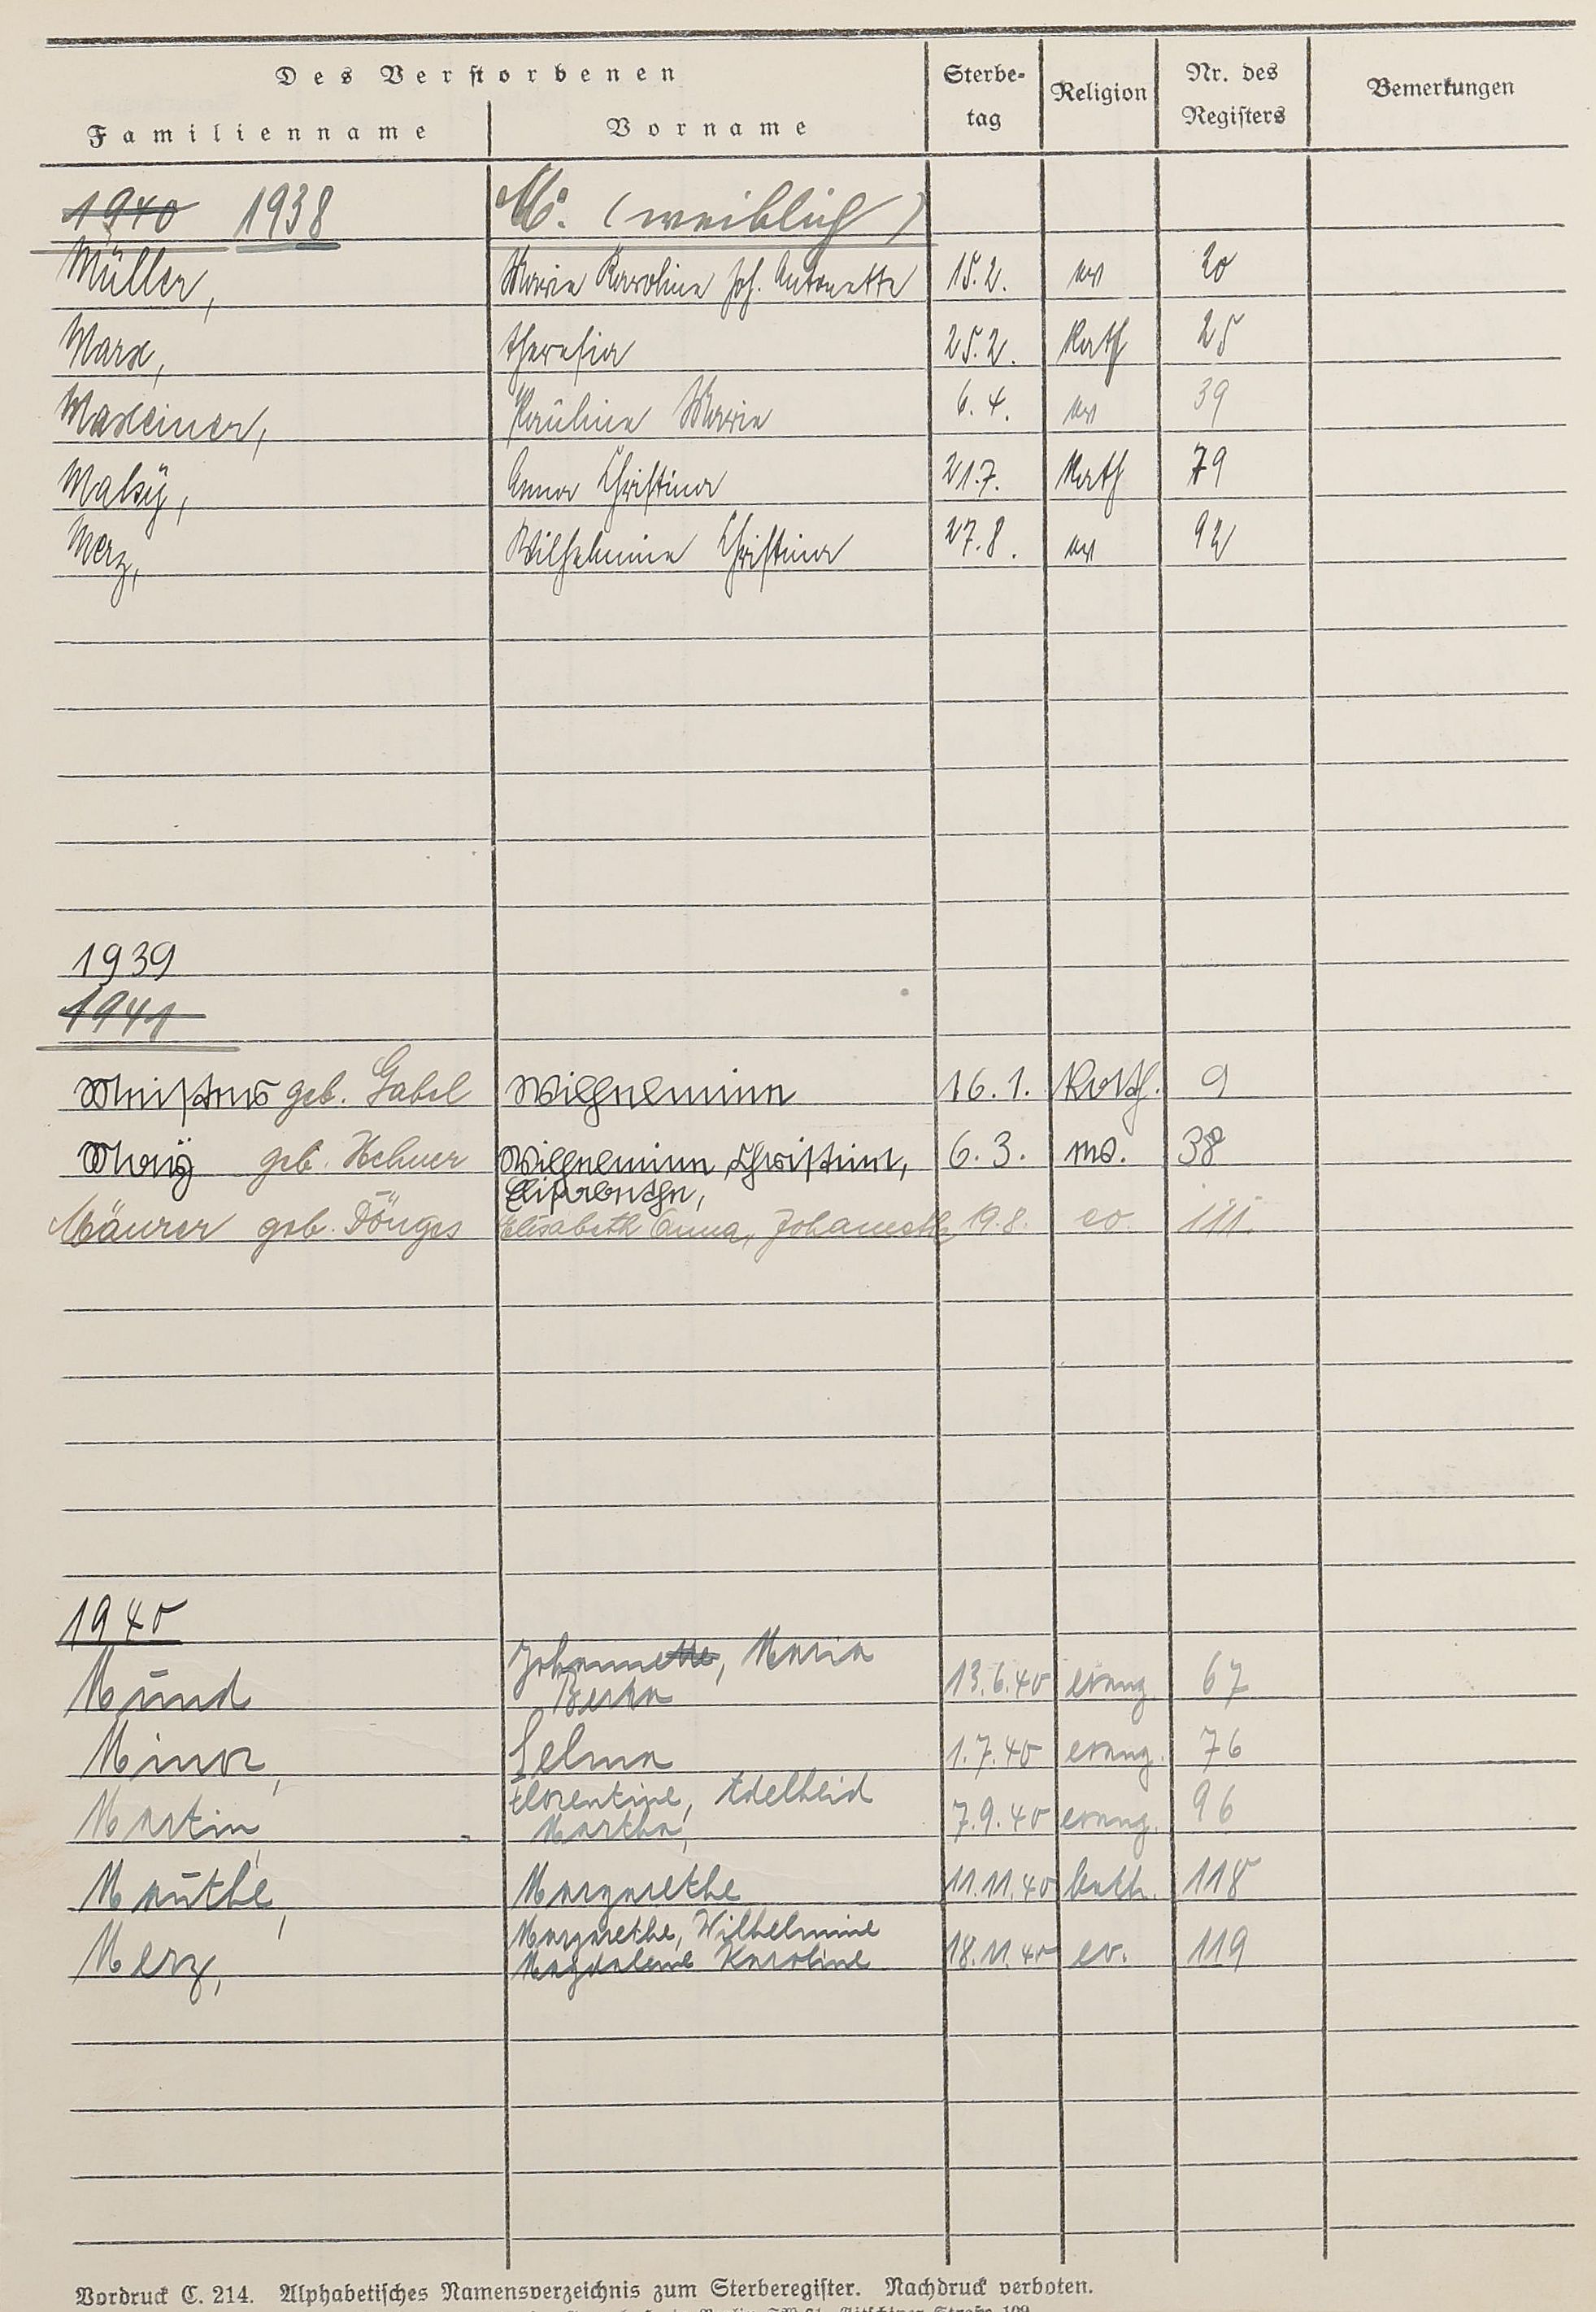 Des Verstorbenen
Familienname Vorname Sterbe-
tag Religion Nr. des
Registers Bemerkungen
1940 1938 M. (weiblich)
Müller, Marie Karoline Joh. Antonette 15.2. ev 20
Marx, Theresia 25.2. Kath 25
Maxeiner, Pauline Marie 6.4. ev 39
Malsÿ, Anna Christina 21.7. Kath 79
Merz, Wilhelmine Christina 27.8. ev 92
1939
1941
Meister geb. Gabel Wilhelmine 16.1. Kath. 9
Maÿ geb. Hehner Wilhelmine, Christine, 6.3. ev. 38
Elisabethe,
Mäurer geb. Dönges Elisabeth Anna, Johannette 19.8. ev. 111.
1940
Johannette, Maria
Mund Berta 13.6.40 evang 67
Minor, Selma 1.7.40 evang. 76
Florentine, Adelheid
Martin, Martha, 7.9.40 evang. 96
Mauthe, Margarethe 11.11.40 kath. 118
Margarethe, Wilhelmine
Merz, Magdalene Karoline 18.11.40 ev. 119
Vordruck C. 214. Alphabetisches Namensverzeichnis zum Sterberegister. Nachdruck verboten.